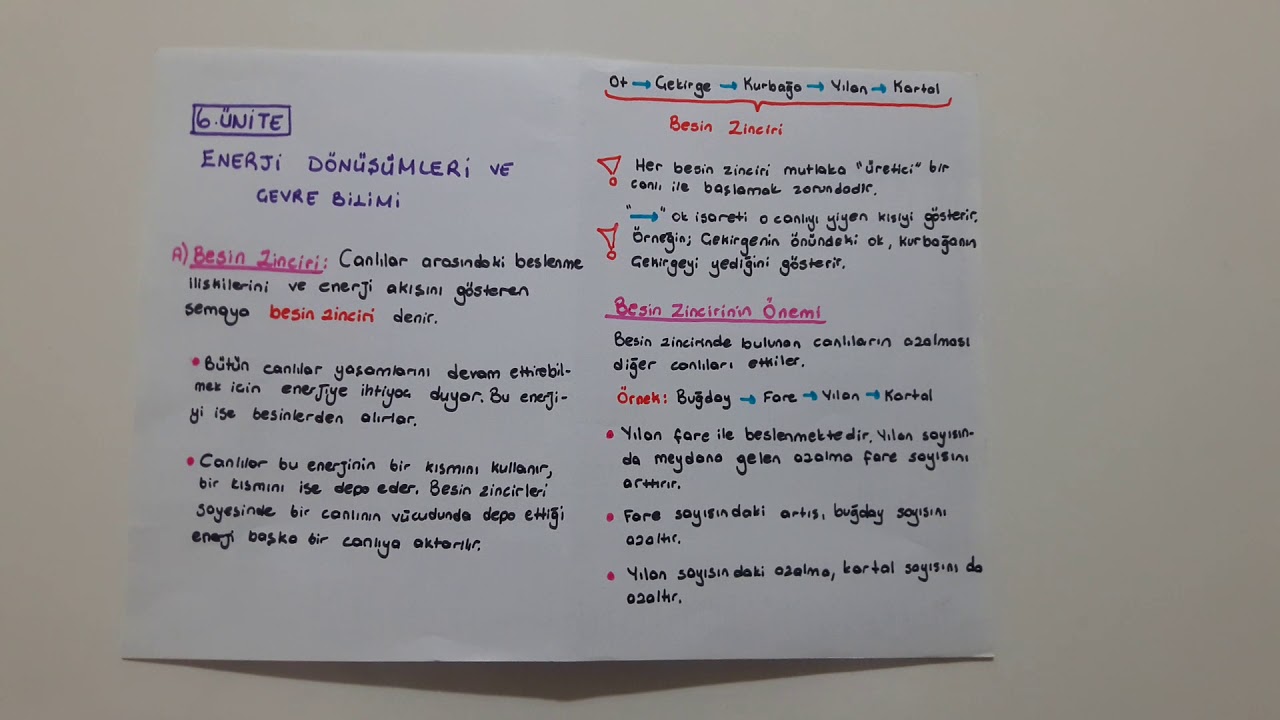 6.ÜNİTE
ENERJİ DÖNÜŞÜMLERİ VE
ÇEVRE BİLİMİ
A) Besin Zinciri: Canlılar arasındaki beslenme
ilişkilerini ve enerji akışını gösteren
şemaya besin zinciri denir.
• Bütün canlılar yaşamlarını devam ettirebil-
mek için enerjiye ihtiyaç duyar. Bu enerji-
yi ise besinlerden alırlar.
• Canlılar bu enerjinin bir kısmını kullanır,
bir kısmını ise depo eder. Besin zincirleri
sayesinde bir canlının vücudunda depo ettiği
enerji başka bir canlıya aktarılır.
Ot → Çekirge → Kurbağa → Yılan → Kartal
Besin Zinciri
! Her besin zinciri mutlaka "üretici" bir
canlı ile başlamak zorundadır.
"→" ok işareti o canlıyı yiyen kişiyi gösterir.
! Örneğin; Çekirgenin önündeki ok, kurbağanın
Çekirgeyi yediğini gösterir.
Besin Zincirinin Önemi
Besin zincirinde bulunan canlıların azalması
diğer canlıları etkiler.
Örnek: Buğday → Fare → Yılan → Kartal
• Yılan fare ile beslenmektedir. Yılan sayısın-
da meydana gelen azalma fare sayısını
arttırır.
• Fare sayısındaki artış, buğday sayısını
azaltır.
• Yılan sayısındaki azalma, kartal sayısını da
azaltır.